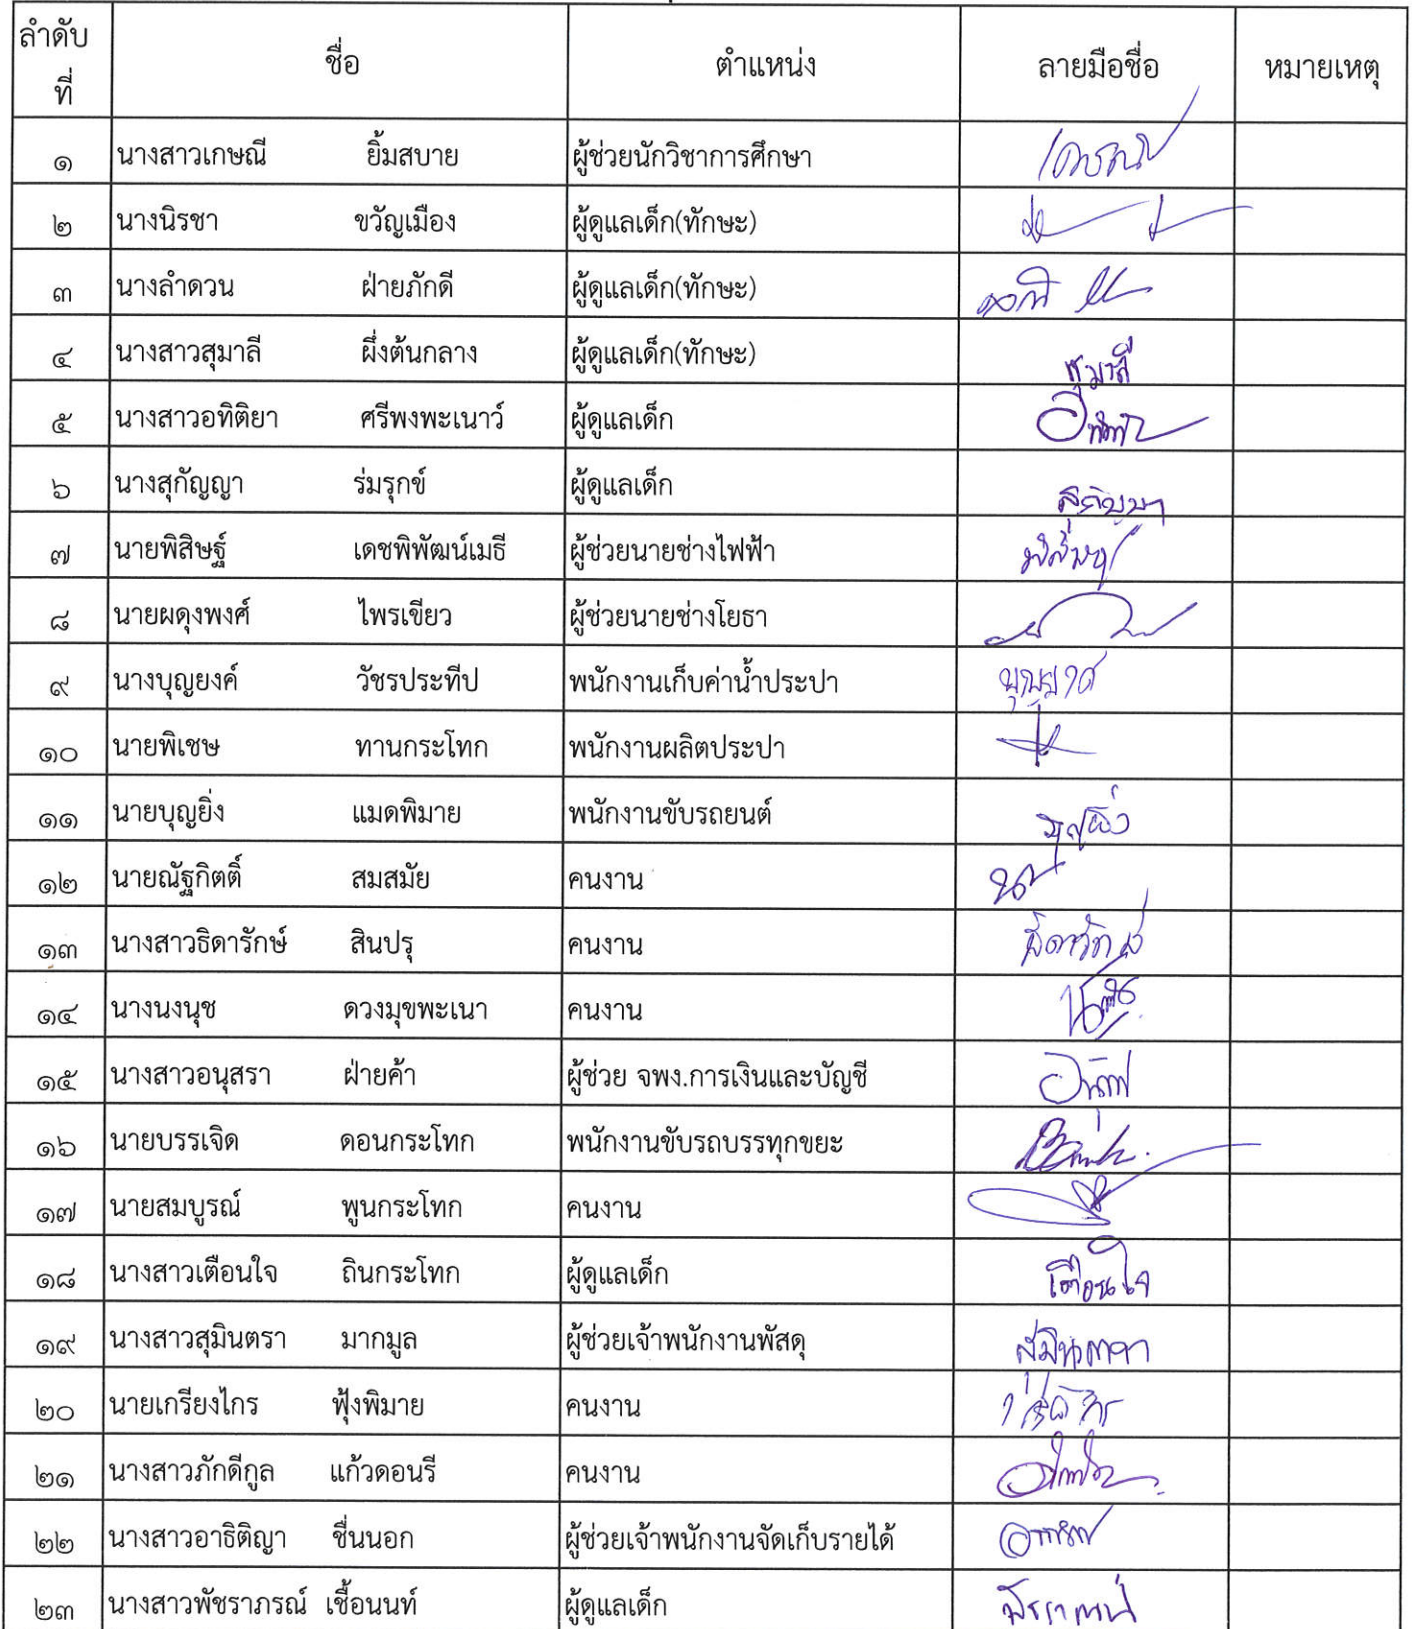 ลำดับที่ ชื่อ ตำแหน่ง ลายมือชื่อ หมายเหตุ
๑ นางสาวเกษณี ยิ้มสบาย ผู้ช่วยนักวิชาการศึกษา
๒ นางนิรชา ขวัญเมือง ผู้ดูแลเด็ก(ทักษะ)
๓ นางลำดวน ฝ่ายภักดี ผู้ดูแลเด็ก(ทักษะ)
๔ นางสาวสุมาลี ผึ่งต้นกลาง ผู้ดูแลเด็ก(ทักษะ) สุมาลี
๕ นางสาวอทิติยา ศรีพงพะเนาว์ ผู้ดูแลเด็ก
๖ นางสุกัญญา ร่มรุกข์ ผู้ดูแลเด็ก สุกัญญา
๗ นายพิสิษฐ์ เดชพิพัฒน์เมธี ผู้ช่วยนายช่างไฟฟ้า
๘ นายผดุงพงศ์ ไพรเขียว ผู้ช่วยนายช่างโยธา
๙ นางบุญยงค์ วัชรประทีป พนักงานเก็บค่าน้ำประปา
๑๐ นายพิเชษ ทานกระโทก พนักงานผลิตประปา
๑๑ นายบุญยิ่ง แมดพิมาย พนักงานขับรถยนต์
๑๒ นายณัฐกิตติ์ สมสมัย คนงาน
๑๓ นางสาวธิดารักษ์ สินปรุ คนงาน
๑๔ นางนงนุช ดวงมุขพะเนา คนงาน
๑๕ นางสาวอนุสรา ฝ่ายค้า ผู้ช่วย จพง.การเงินและบัญชี
๑๖ นายบรรเจิด ดอนกระโทก พนักงานขับรถบรรทุกขยะ
๑๗ นายสมบูรณ์ พูนกระโทก คนงาน
๑๘ นางสาวเตือนใจ ถินกระโทก ผู้ดูแลเด็ก เตือนใจ
๑๙ นางสาวสุมินตรา มากมูล ผู้ช่วยเจ้าพนักงานพัสดุ
๒๐ นายเกรียงไกร ฟุ้งพิมาย คนงาน
๒๑ นางสาวภักดีกูล แก้วดอนรี คนงาน
๒๒ นางสาวอาธิติญา ชื่นนอก ผู้ช่วยเจ้าพนักงานจัดเก็บรายได้
๒๓ นางสาวพัชราภรณ์ เชื้อนนท์ ผู้ดูแลเด็ก